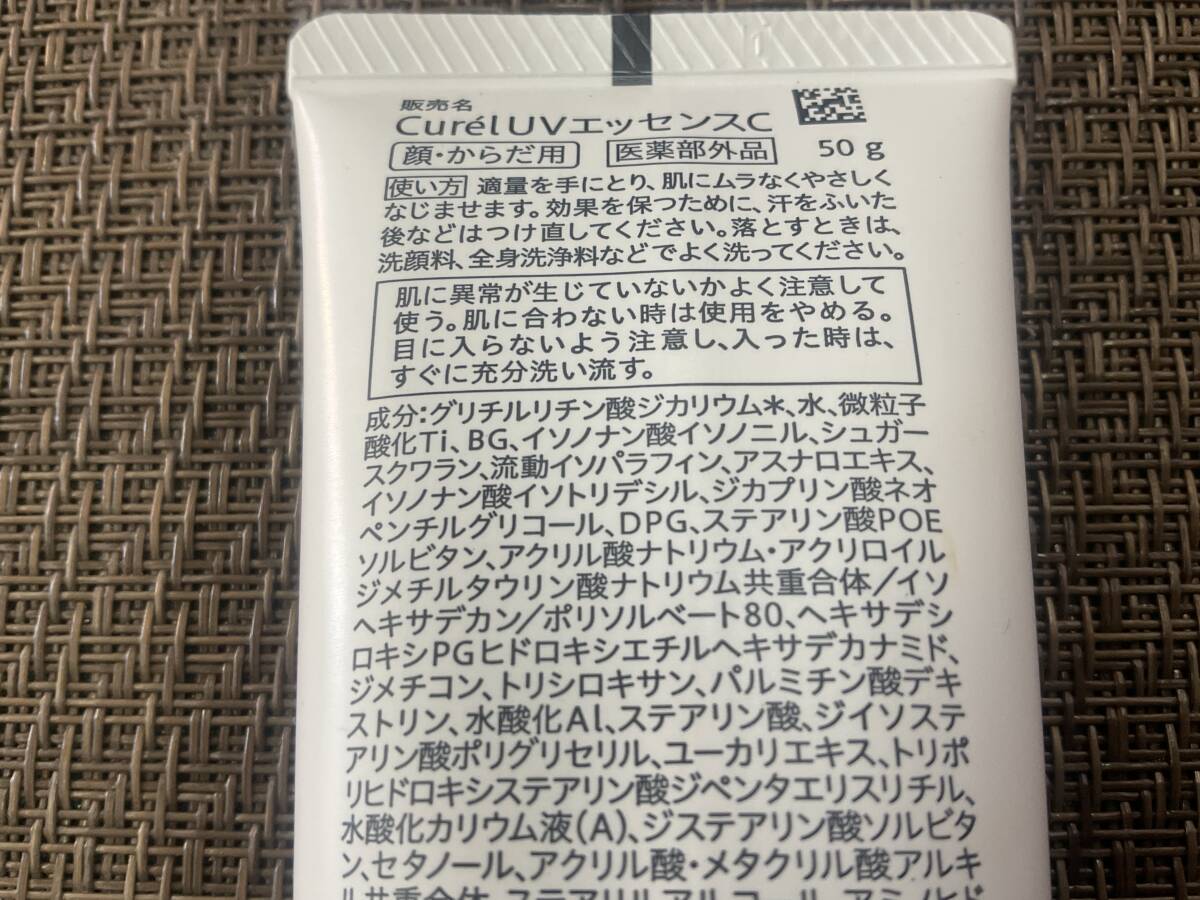 販売名
CurélUVエッセンスC
顔・からだ用 医薬部外品 50 g
使い方 適量を手にとり、肌にムラなくやさしく
なじませます。効果を保つために、汗をふいた
後などはつけ直してください。落とすときは、
洗顔料、全身洗浄料などでよく洗ってください。
肌に異常が生じていないかよく注意して
使う。肌に合わない時は使用をやめる。
目に入らないよう注意し、入った時は、
すぐに充分洗い流す。
成分:グリチルリチン酸ジカリウム*、水、微粒子
酸化Ti、BG、イソノナン酸イソノニル、シュガー
スクワラン、流動イソパラフィン、アスナロエキス、
イソノナン酸イソトリデシル、ジカプリン酸ネオ
ペンチルグリコール、DPG、ステアリン酸POE
ソルビタン、アクリル酸ナトリウム・アクリロイル
ジメチルタウリン酸ナトリウム共重合体/イソ
ヘキサデカン/ポリソルベート80、ヘキサデシ
ロキシPGヒドロキシエチルヘキサデカナミド、
ジメチコン、トリシロキサン、パルミチン酸デキ
ストリン、水酸化Al、ステアリン酸、ジイソステ
アリン酸ポリグリセリル、ユーカリエキス、トリポ
リヒドロキシステアリン酸ジペンタエリスリチル、
水酸化カリウム液(A)、ジステアリン酸ソルビタ
ン、セタノール、アクリル酸・メタクリル酸アルキ
ル共重合体、ステアリルアルコール、アミノヒド